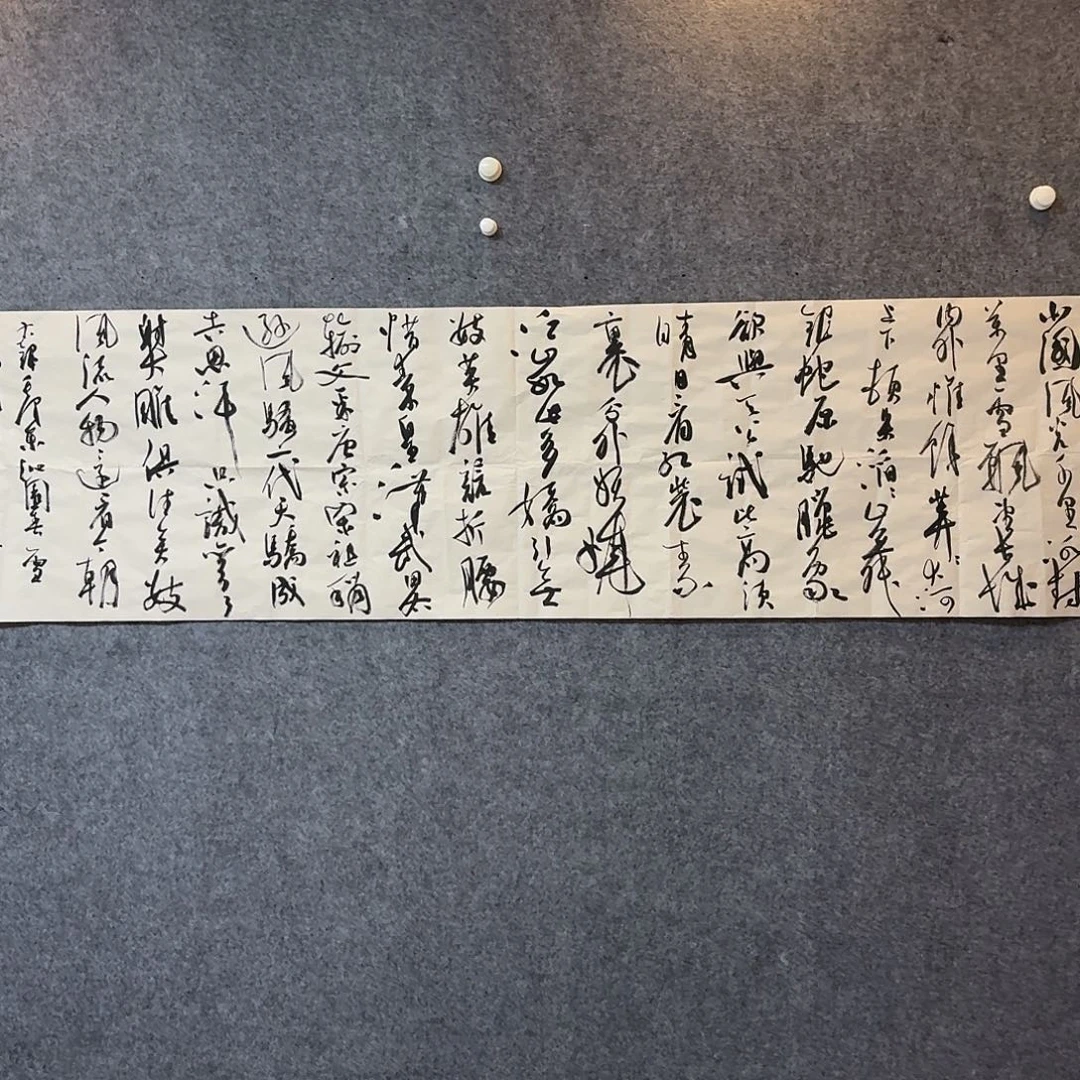 北國風光千里冰封
萬里雪飄望長城
內外惟餘莽莽大河
上下頓失滔滔山舞
銀蛇原馳臘象
欲與天公試比高須
晴日看紅裝素
裹分外妖嬈
江山如此多嬌引無
數英雄競折腰
惜秦皇漢武畧
輸文采唐宗宋祖稍
遜風騷一代天驕成
吉思汗只識彎弓
射大雕俱往矣數
風流人物還看今朝
錄毛澤東沁園春雪